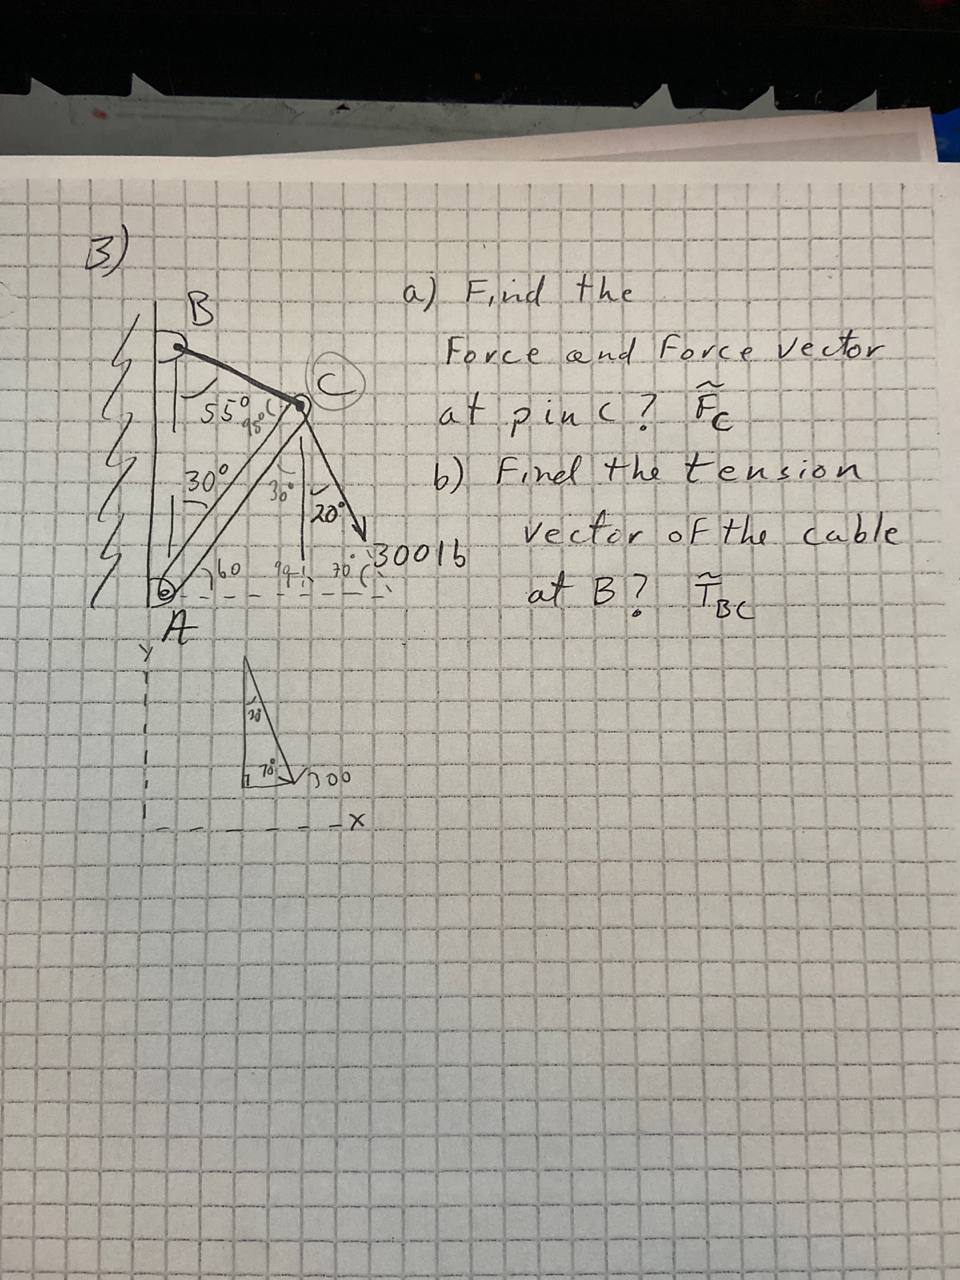 3)
B
a) Find the
Force and Force vector
at pin C? F̃C
C
55°
95°
b) Find the tension
vector of the cable
at B? T̃BC
30°
30°
20°
300lb
60
70°
A
y
20
70°
300
x